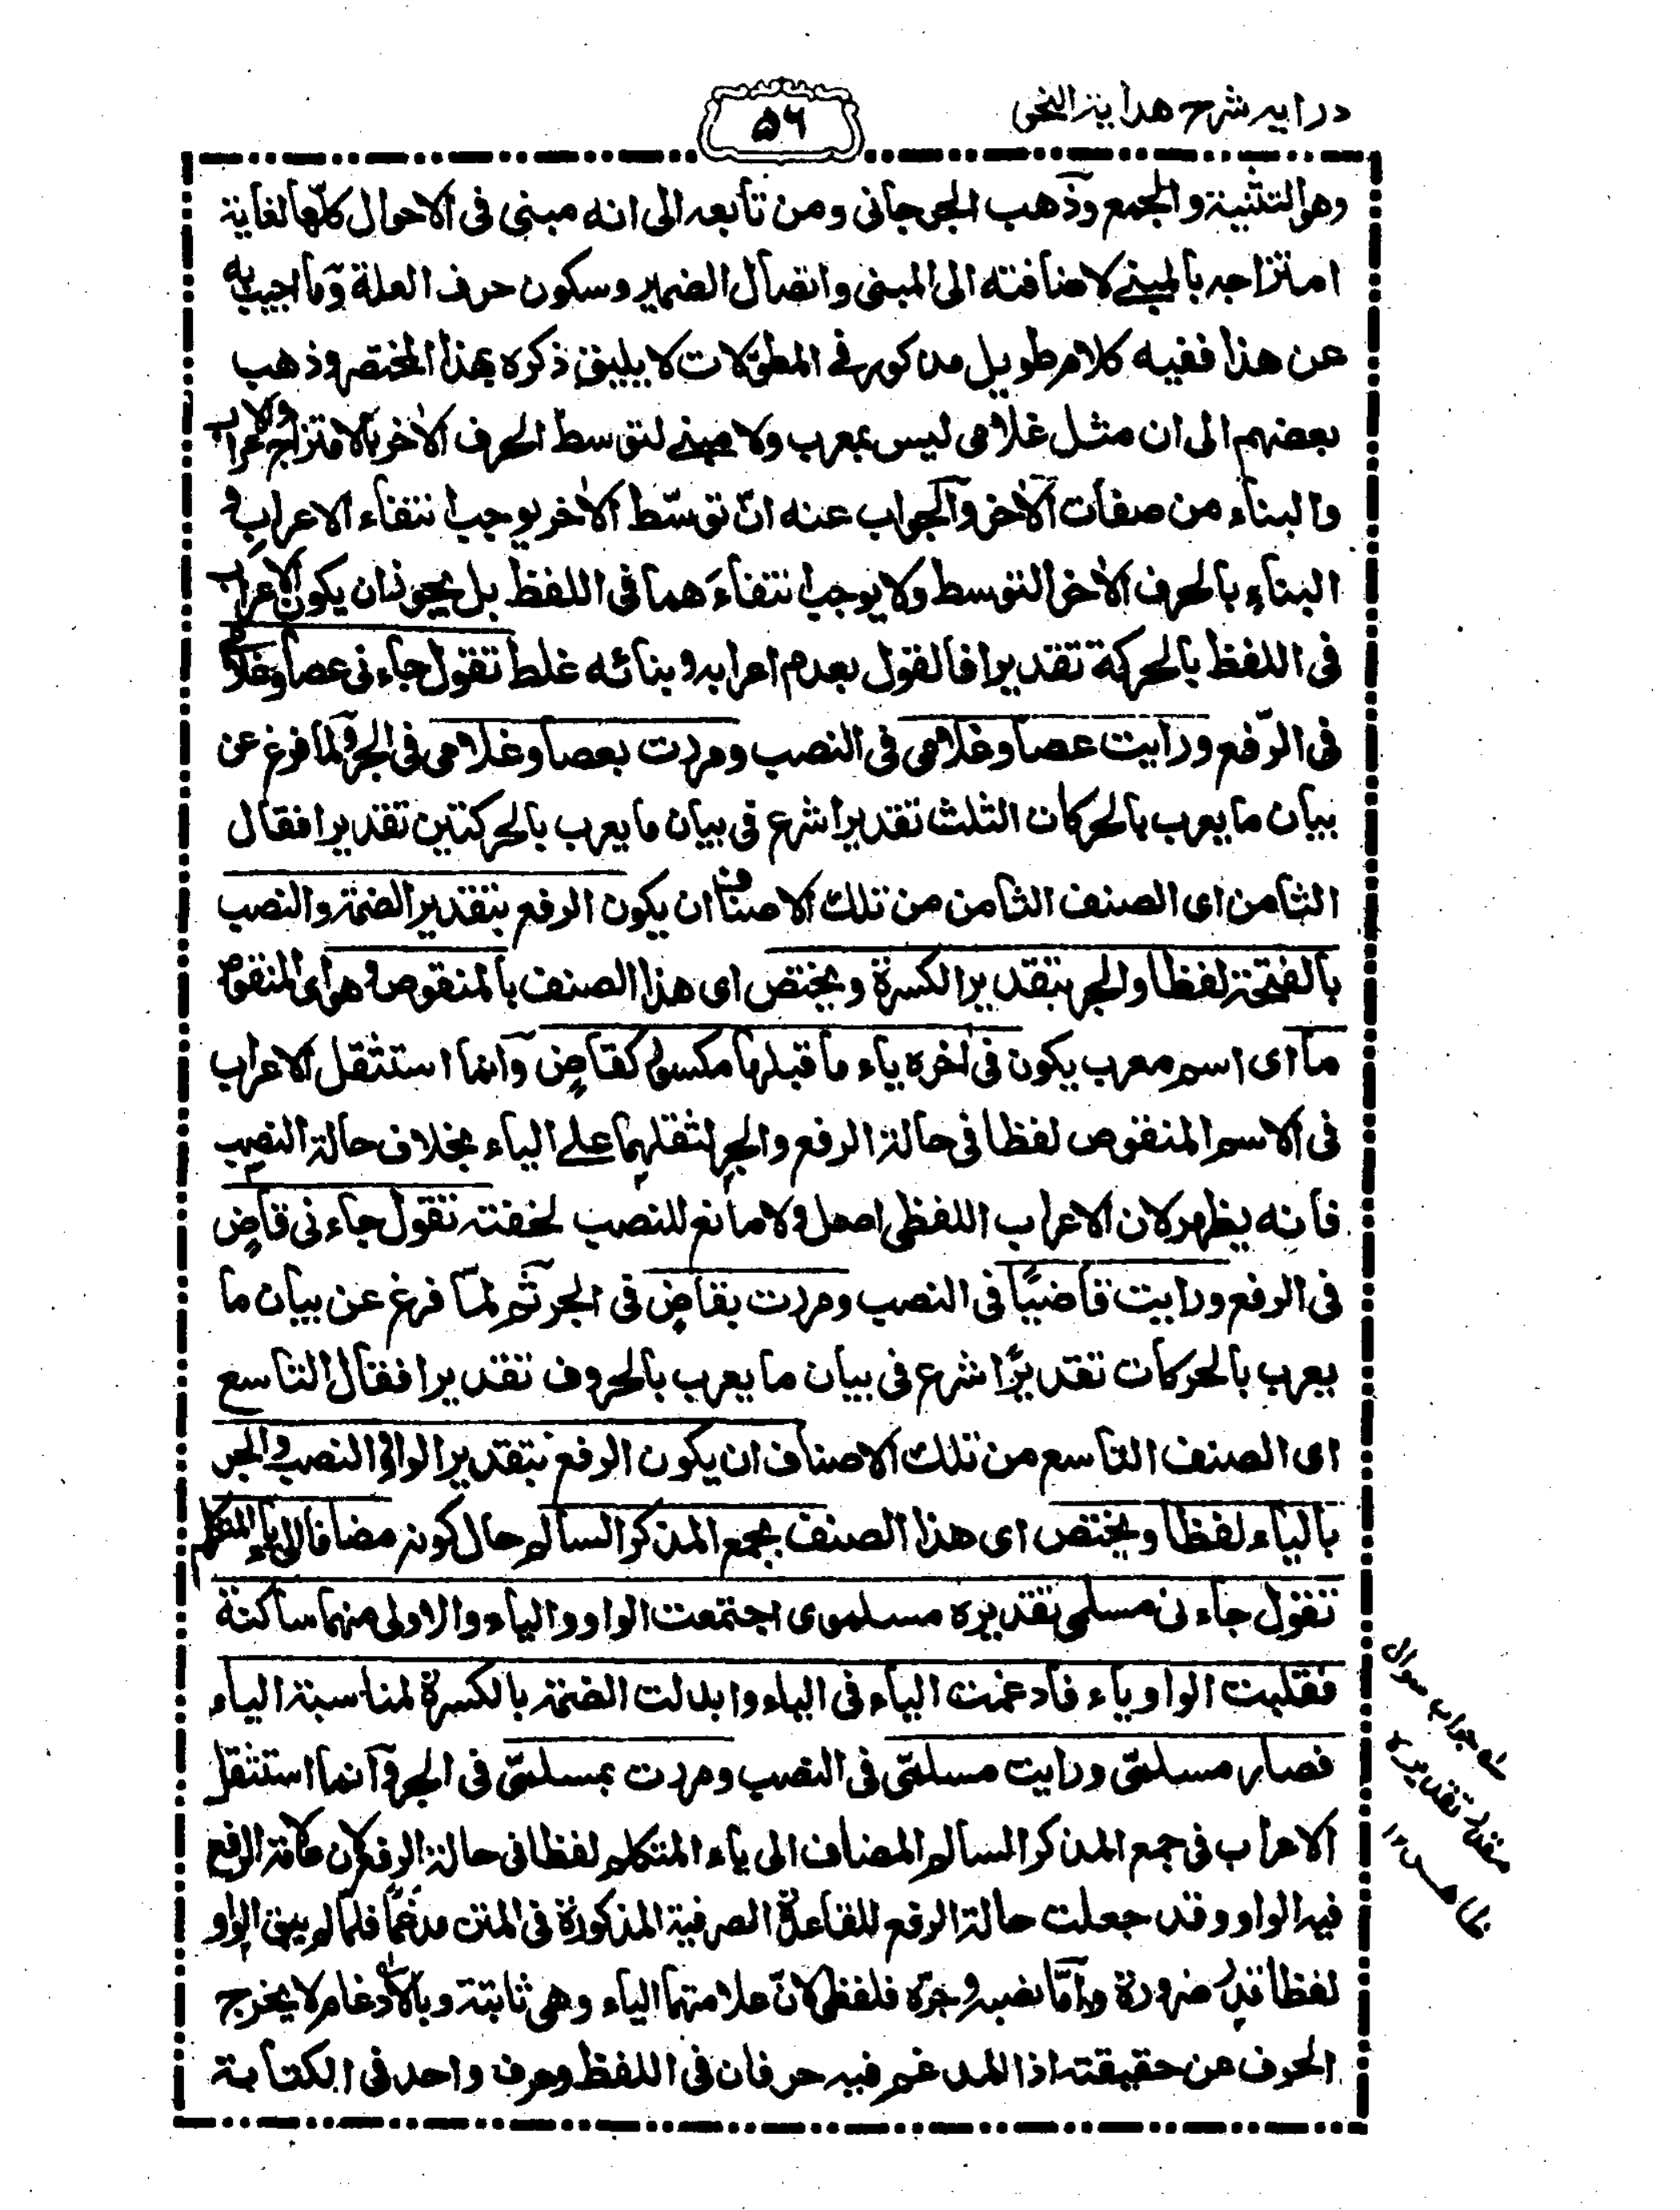 درايه شرح هداية النحو
۵۶
وهو التثنية والجمع وذهب الجرجانى ومن تابعه الى انه مبنى فى الاحوال كلّها لغاية
امتزاجه بالمبنے لاضافته الى المبنى واتصال الضمير وسكون حرف العلة وما اجيب به
عن هذا ففيه كلام طويل مذكور فے المطوّلات لا يليق ذكره بهذا المختصر وذهب
بعضهم الى ان مثل غلامى ليس بمعرب ولا مبنے لتوسط الحرف الاٰخر بالامتزاج والاعراب
والبناء من صفات الاٰخر والجواب عنه انّ توسّط الاٰخر يوجب انتفاء الاعراب و
البناءِ بالحرف الاٰخر المتوسط ولا يوجب انتفاءَهما فى اللفظ بل يجوز ان يكون الاعراب
فى اللفظ بالحركة تقديرا فالقول بعدم اعرابه وبنائه غلط تقول جاءنى عصا وغلامى
فى الرّفع ورايت عصا وغلامى فى النصب ومررت بعصا وغلامى فى الجر ولما فرغ عن
بيان ما يعرب بالحركات الثلث تقديرا شرع فى بيان ما يعرب بالحركتين تقديرا فقال
الثامن اى الصنف الثامن من تلك الاصناف ان يكون الرفع بتقدير الضمة والنصب
بالفتحة لفظا والجر بتقدير الكسرة ويختص اى هذا الصنف بالمنقوص وهو اى المنقوص
ما اى اسم معرب يكون فى اٰخره ياء ما قبلها مكسور كقاضٍ وانما استثقل الاعراب
فى الاسم المنقوص لفظا فى حالة الرفع والجر لثقلهما علے الياء بخلاف حالة النصب
فانه يظهر لان الاعراب اللفظى اصل ولا مانع للنصب لخفته تقول جاءنى قاضٍ
فى الرفع ورايت قاضيًا فى النصب ومررت بقاضٍ فى الجر ثم لمّا فرغ عن بيان ما
يعرب بالحركات تقديرًا شرع فى بيان ما يعرب بالحروف تقديرا فقال التاسع
اى الصنف التاسع من تلك الاصناف ان يكون الرفع بتقدير الواو والنصب والجر
بالياء لفظا ويختص اى هذا الصنف بجمع المذكر السالم حال كونه مضافا الى ياء المتكلم
تقول جاءنى مسلمى تقديره مسلموى اجتمعت الواو والياء والاولى منهما ساكنة
فقلبت الواو ياء فادغمت الياء فى الياء وابدلت الضمة بالكسرة لمناسبة الياء
فصار مسلمىّ ورايت مسلمىّ فى النصب ومررت بمسلمىّ فى الجر وانما استثقل
الاعراب فى جمع المذكر السالم المضاف الى ياء المتكلم لفظا فى حالة الرفع لان علامة الرفع
فيه الواو وقد جعلت حالة الرفع للقاعدة الصرفية المذكورة فى المتن مدغمًا فلما لم يبق الواو
لفظا قدر ضرورة وامّا نصبه وجرّه فلفظى لانّ علامتهما الياء وهى ثابتة وبالادغام لا يخرج
الحرف عن حقيقته اذ المدغم فيه حرفان فى اللفظ وحرف واحد فى الكتابة
له جواب سوال
مقدر تقديره
ظاهر ١٢